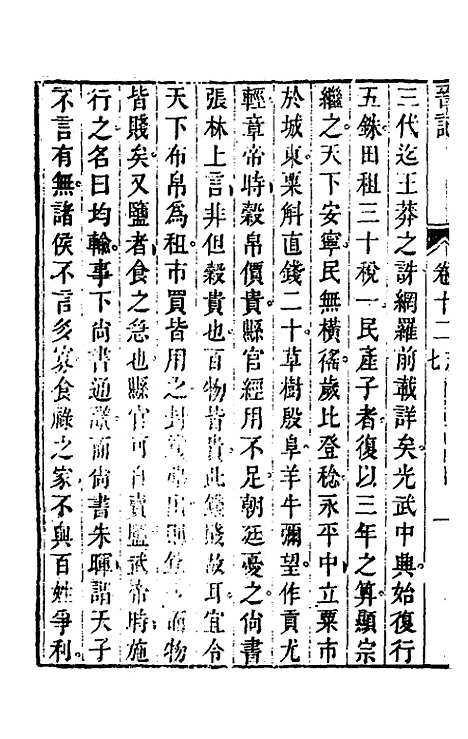 三代迄王莽之誅網羅前載詳矣光武中興始復行
五銖田租三十稅一民產子者復以三年之算顯宗
繼之天下安寧民無橫徭歲比登稔永平中立粟市
於城東粟斛直錢二十草樹殷阜羊牛彌望作貢尤
輕章帝時穀帛價貴縣官經用不足朝廷憂之尚書
張林上言非但穀貴也百物皆貴此錢賤故耳宜令
天下布帛爲租市買皆用之封錢勿出則錢少而物
皆賤矣又鹽者食之急也縣官可自賣鹽武帝時施
行之名曰均輸事下尚書通議而尚書朱暉諮天子
不言有無諸侯不言多寡食祿之家不與百姓爭利
晉記
卷十二
七